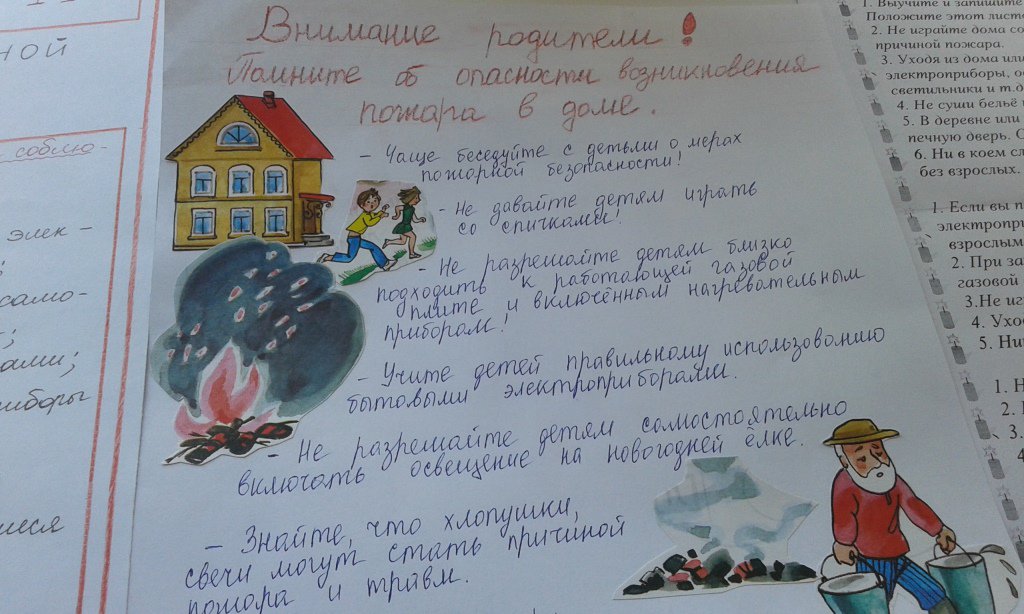 Внимание родители!
Помните об опасности возникновения
пожара в доме.
- Чаще беседуйте с детьми о мерах
пожарной безопасности!
- Не давайте детям играть
со спичками!
- Не разрешайте детям близко
подходить к работающей газовой
плите и включённым нагревательным
приборам!
- Учите детей правильному использованию
бытовыми электроприборами.
- Не разрешайте детям самостоятельно
включать освещение на новогодней ёлке.
- Знайте, что хлопушки,
свечи могут стать причиной
пожара и травм.
ной
соблю-
элек-
само-
ами;
иборы
1. Выучите и запишите
Положите этот лист
2. Не играйте дома со
причиной пожара.
3. Уходя из дома или
электроприборы, ос
светильники и т.д
4. Не суши бельё
5. В деревне или
печную дверь. О
6. Ни в коем сл
без взрослых.
1. Если вы п
электропри
взрослым
2. При за
газовой
3.Не иг
4. Ухо
5. Ни
1. Н
2.
3.
4